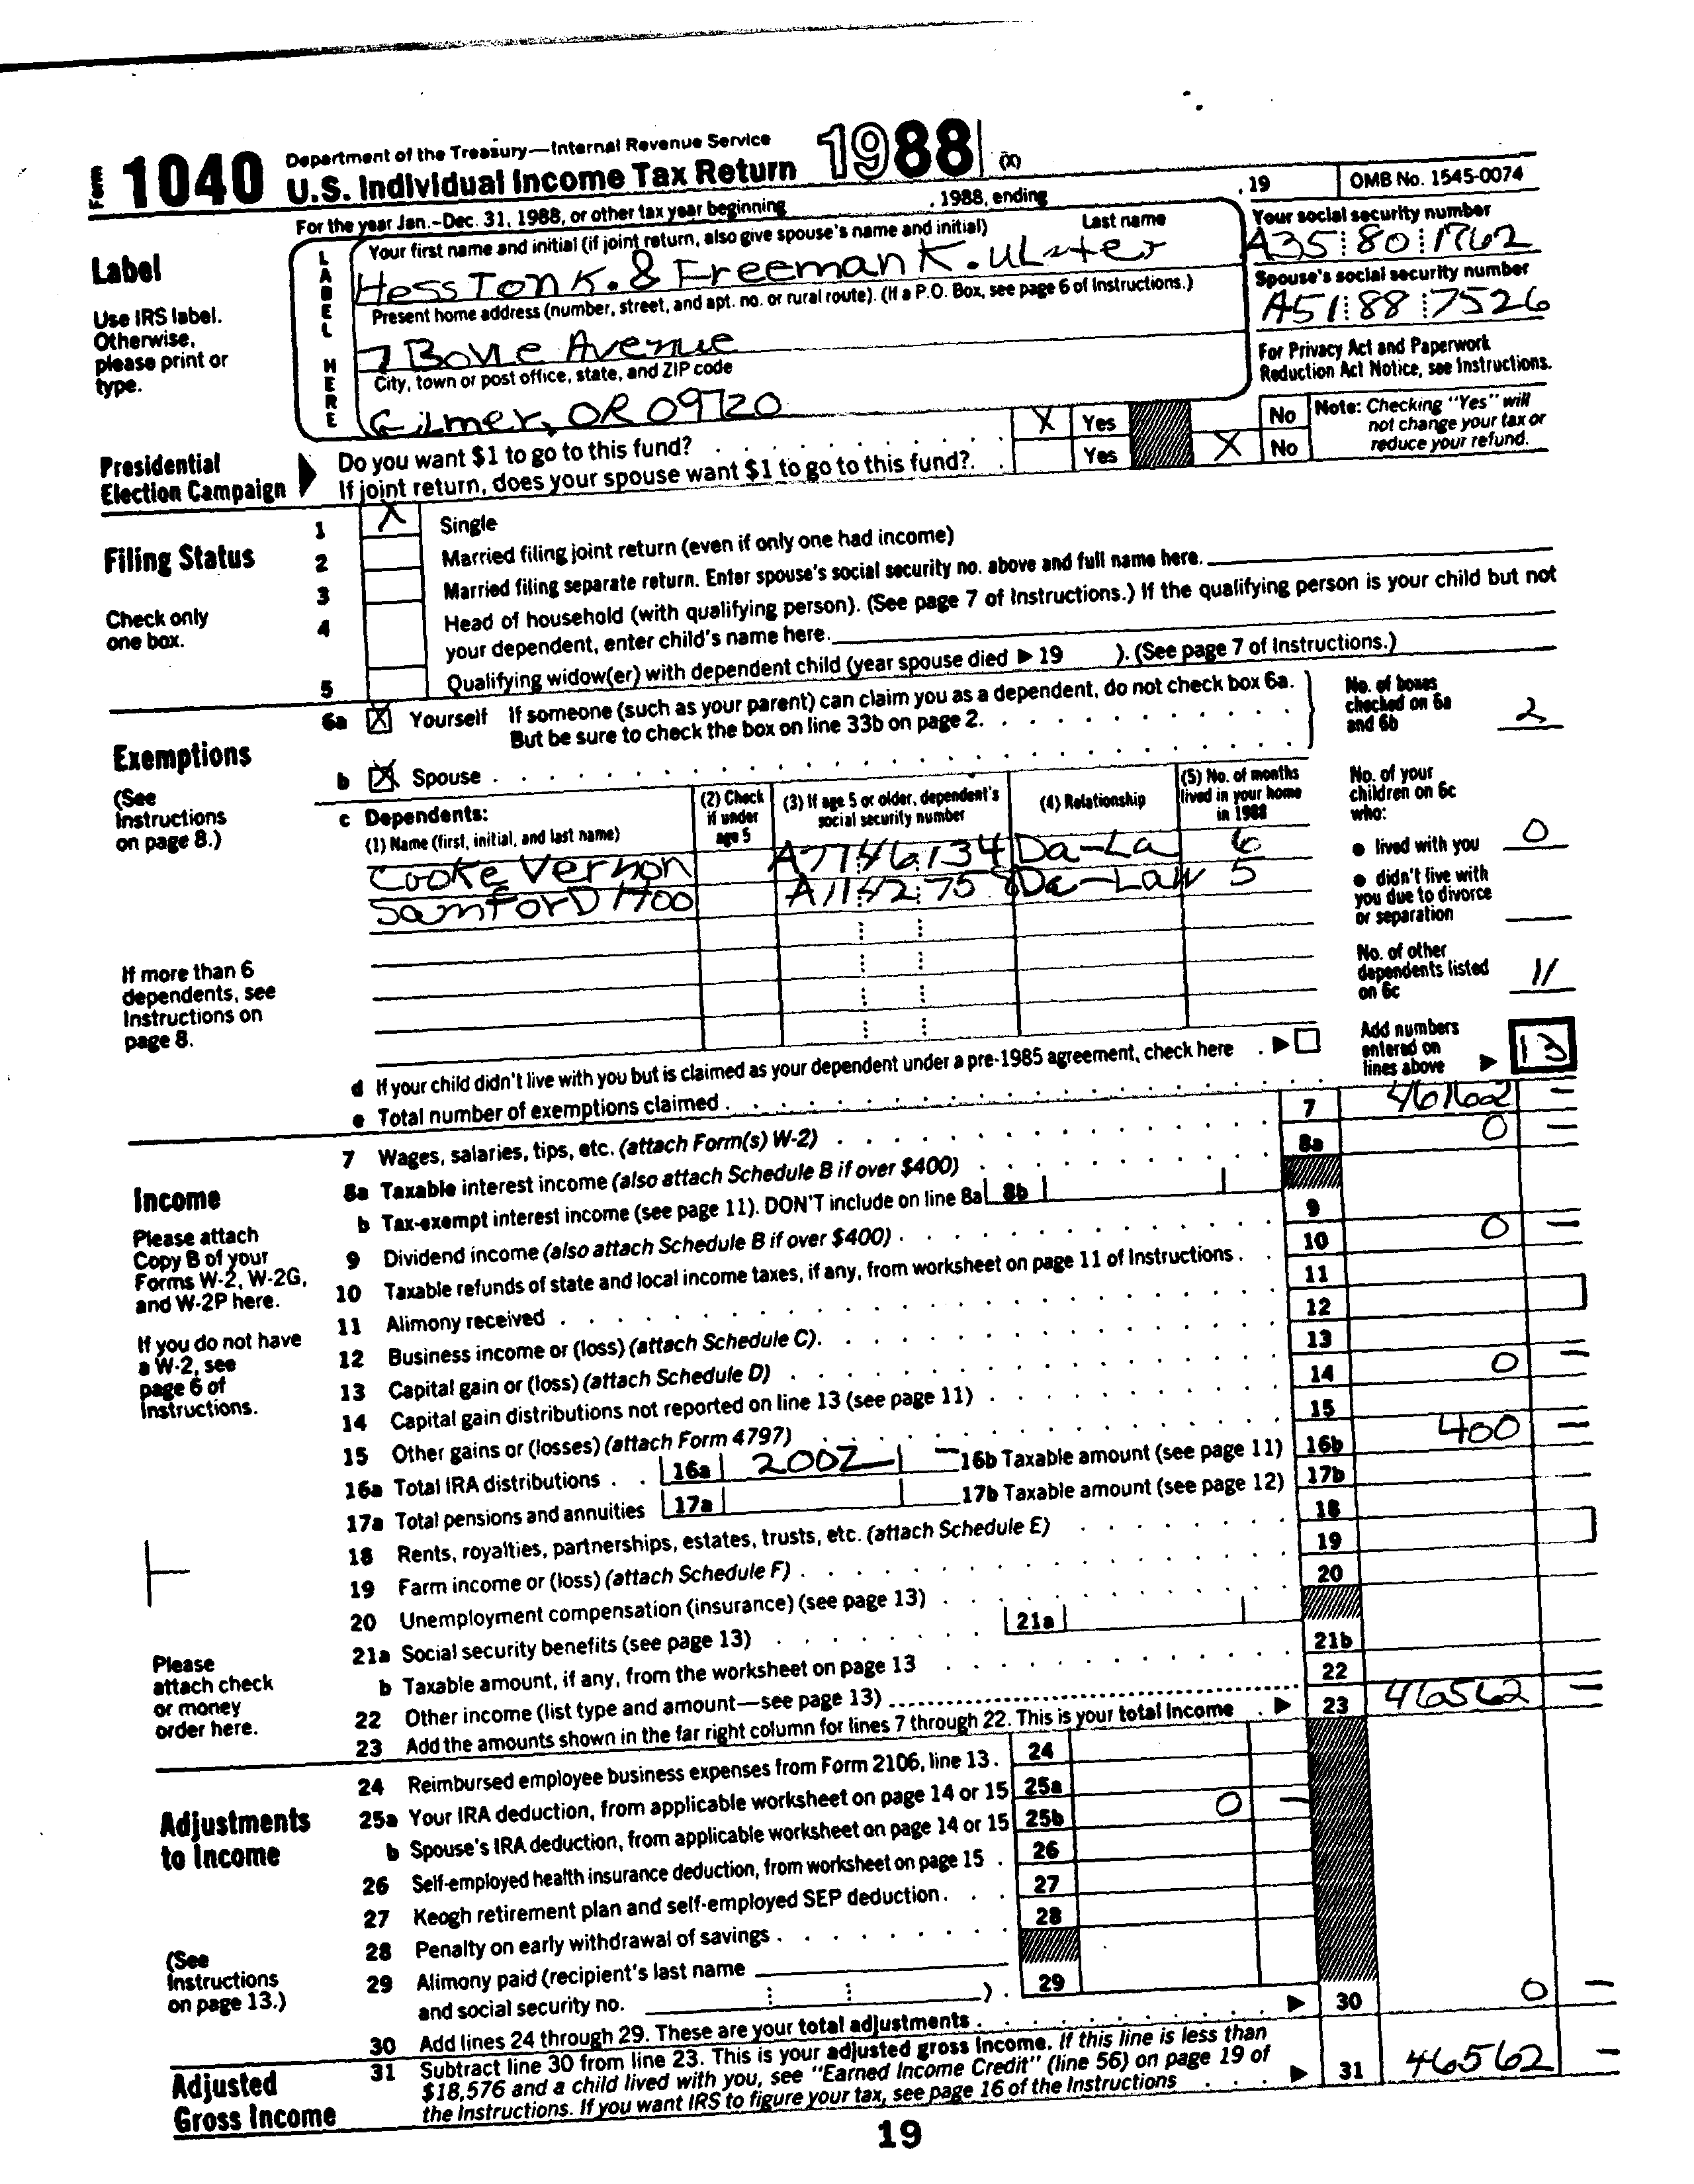 Form 1040 Department of the Treasury—Internal Revenue Service
U.S. Individual Income Tax Return 1988 (X)
For the year Jan.-Dec. 31, 1988, or other tax year beginning , 1988, ending , 19 OMB No. 1545-0074
Label
Use IRS label.
Otherwise,
please print or
type.
LABEL HERE
Your first name and initial (if joint return, also give spouse's name and initial) Last name
Hesston K. & Freeman K. Ulster
Your social security number
A35 80 1762
Present home address (number, street, and apt. no. or rural route). (If a P.O. Box, see page 6 of Instructions.)
7 Bovie Avenue
Spouse's social security number
A51 88 7526
City, town or post office, state, and ZIP code
Gilmer, OR 09720
For Privacy Act and Paperwork
Reduction Act Notice, see Instructions.
Presidential
Election Campaign
Do you want $1 to go to this fund? X Yes No
If joint return, does your spouse want $1 to go to this fund?. Yes X No
Note: Checking "Yes" will
not change your tax or
reduce your refund.
Filing Status
Check only
one box.
1 X Single
2 Married filing joint return (even if only one had income)
3 Married filing separate return. Enter spouse's social security no. above and full name here.
4 Head of household (with qualifying person). (See page 7 of Instructions.) If the qualifying person is your child but not
your dependent, enter child's name here.
5 Qualifying widow(er) with dependent child (year spouse died ▶ 19 ). (See page 7 of Instructions.)
Exemptions
(See
Instructions
on page 8.)
6a X Yourself If someone (such as your parent) can claim you as a dependent, do not check box 6a.
But be sure to check the box on line 33b on page 2.
b X Spouse
No. of boxes
checked on 6a
and 6b 2
c Dependents:
(1) Name (first, initial, and last name)
(2) Check
if under
age 5
(3) If age 5 or older, dependent's
social security number
(4) Relationship
(5) No. of months
lived in your home
in 1988
Cooke Vernon Da-La 6
Samford Da-Law 5
No. of your
children on 6c
who:
● lived with you 0
● didn't live with
you due to divorce
or separation
No. of other
dependents listed
on 6c 11
If more than 6
dependents, see
Instructions on
page 8.
d If your child didn't live with you but is claimed as your dependent under a pre-1985 agreement, check here ▶
e Total number of exemptions claimed
Add numbers
entered on
lines above ▶ 13
Income
Please attach
Copy B of your
Forms W-2, W-2G,
and W-2P here.
If you do not have
a W-2, see
page 6 of
Instructions.
7 Wages, salaries, tips, etc. (attach Form(s) W-2) 7 46162 —
8a Taxable interest income (also attach Schedule B if over $400) 8a 0 —
b Tax-exempt interest income (see page 11). DON'T include on line 8a 8b
9 Dividend income (also attach Schedule B if over $400) 9
10 Taxable refunds of state and local income taxes, if any, from worksheet on page 11 of Instructions 10 0 —
11 Alimony received 11
12 Business income or (loss) (attach Schedule C). 12
13 Capital gain or (loss) (attach Schedule D) 13
14 Capital gain distributions not reported on line 13 (see page 11) 14 0 —
15 Other gains or (losses) (attach Form 4797) 15
16a Total IRA distributions 16a 2002 — 16b Taxable amount (see page 11) 16b 400 —
17a Total pensions and annuities 17a 17b Taxable amount (see page 12) 17b
18 Rents, royalties, partnerships, estates, trusts, etc. (attach Schedule E) 18
19 Farm income or (loss) (attach Schedule F) 19
20 Unemployment compensation (insurance) (see page 13) 20
21a Social security benefits (see page 13) 21a
b Taxable amount, if any, from the worksheet on page 13 21b
22 Other income (list type and amount—see page 13) 22
23 Add the amounts shown in the far right column for lines 7 through 22. This is your total income ▶ 23 46562 —
Please
attach check
or money
order here.
Adjustments
to Income
(See
Instructions
on page 13.)
24 Reimbursed employee business expenses from Form 2106, line 13. 24
25a Your IRA deduction, from applicable worksheet on page 14 or 15 25a
b Spouse's IRA deduction, from applicable worksheet on page 14 or 15 25b 0 —
26 Self-employed health insurance deduction, from worksheet on page 15 26
27 Keogh retirement plan and self-employed SEP deduction 27
28 Penalty on early withdrawal of savings 28
29 Alimony paid (recipient's last name
and social security no. ) 29
30 Add lines 24 through 29. These are your total adjustments ▶ 30 0 —
Adjusted
Gross Income
31 Subtract line 30 from line 23. This is your adjusted gross income. If this line is less than
$18,576 and a child lived with you, see "Earned Income Credit" (line 56) on page 19 of
the Instructions. If you want IRS to figure your tax, see page 16 of the Instructions ▶ 31 46562 —
19